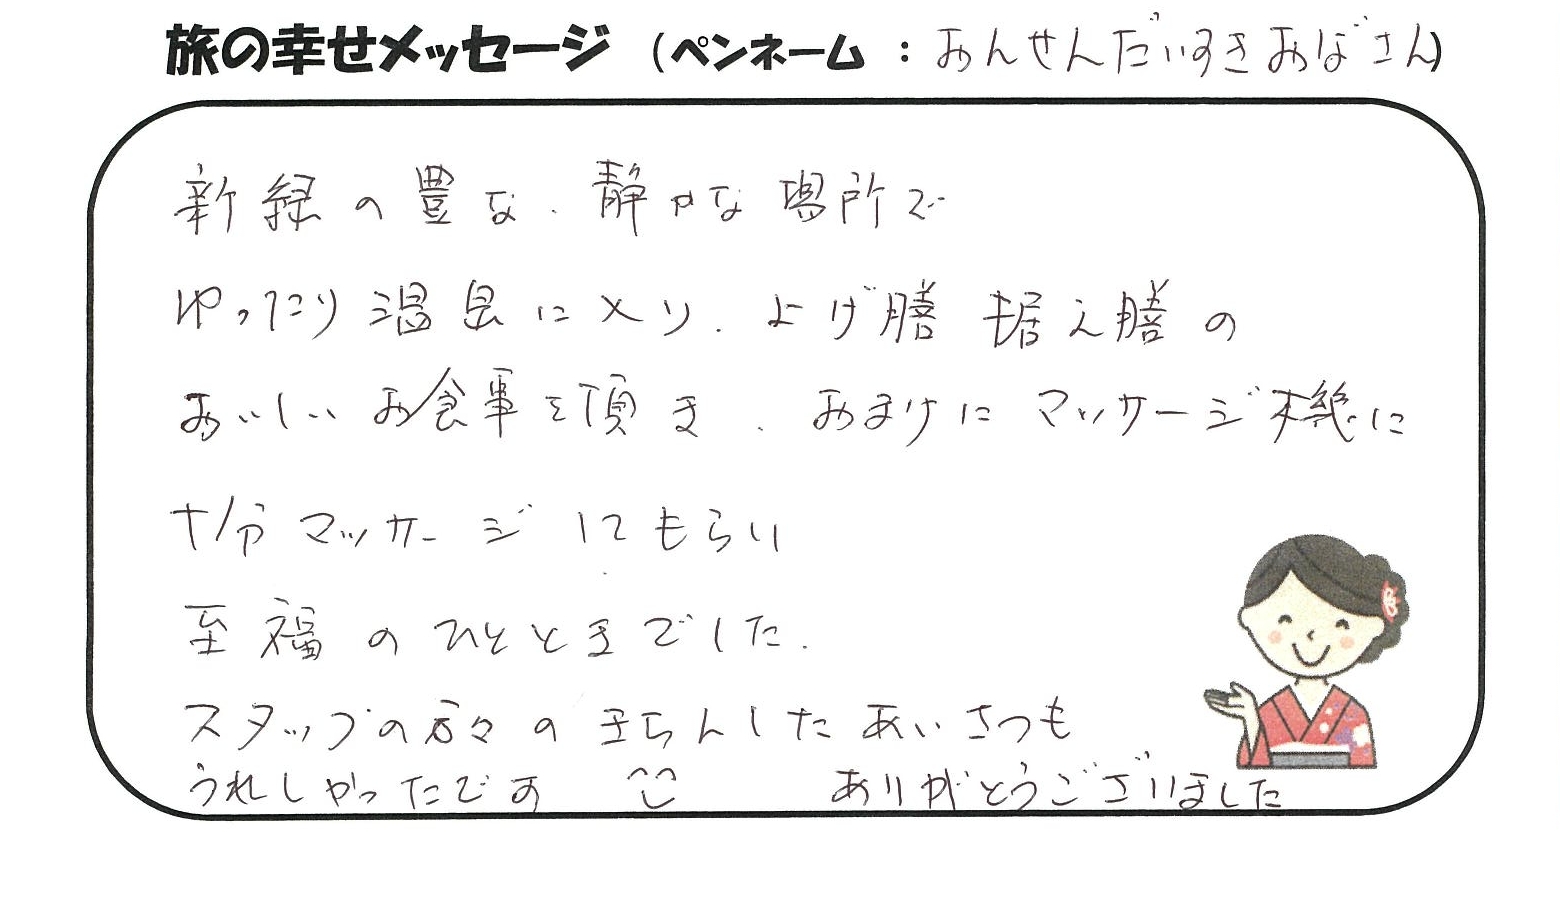 旅の幸せメッセージ (ペンネーム : おんせんだいすきおばさん)
新緑の豊な、静かな場所で
ゆったり温泉に入り、上げ膳 据え膳の
おいしいお食事を頂き、おまけにマッサージ機に
十分マッサージしてもらい
至福のひとときでした。
スタッフの方々のきちんとしたあいさつも
うれしかったです ありがとうございました